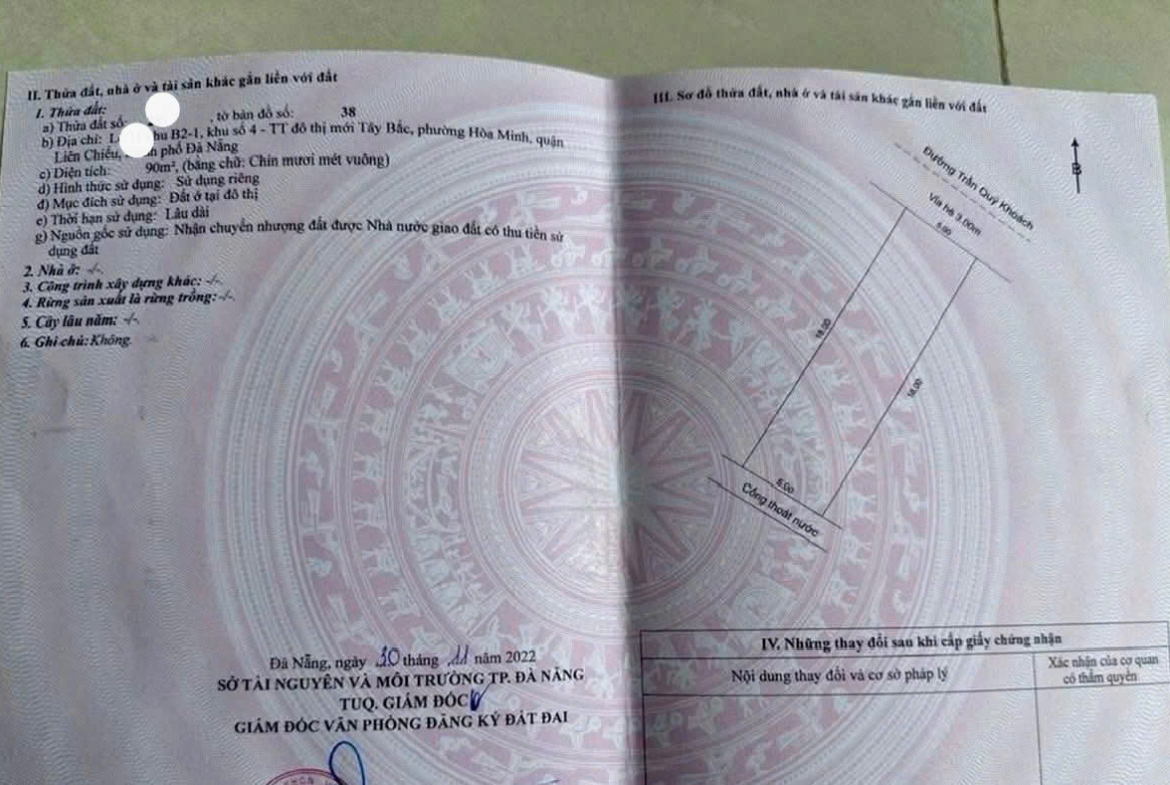 II. Thửa đất, nhà ở và tài sản khác gắn liền với đất
1. Thửa đất:
a) Thửa đất số: , tờ bản đồ số: 38
b) Địa chỉ: B2-1, khu số 4 - TT đô thị mới Tây Bắc, phường Hòa Minh, quận
Liên Chiểu, phố Đà Nẵng
c) Diện tích: 90m², (bằng chữ: Chín mươi mét vuông)
d) Hình thức sử dụng: Sử dụng riêng
đ) Mục đích sử dụng: Đất ở tại đô thị
e) Thời hạn sử dụng: Lâu dài
g) Nguồn gốc sử dụng: Nhận chuyển nhượng đất được Nhà nước giao đất có thu tiền sử
dụng đất
2. Nhà ở: -/-
3. Công trình xây dựng khác: -/-
4. Rừng sản xuất là rừng trồng: -/-
5. Cây lâu năm: -/-
6. Ghi chú: Không.
Đà Nẵng, ngày 30 tháng 11 năm 2022
SỞ TÀI NGUYÊN VÀ MÔI TRƯỜNG TP. ĐÀ NẴNG
TUQ. GIÁM ĐỐC
GIÁM ĐỐC VĂN PHÒNG ĐĂNG KÝ ĐẤT ĐAI
III. Sơ đồ thửa đất, nhà ở và tài sản khác gắn liền với đất
B
Đường Trần Quý Khoách
Vỉa hè 3.00m
5.00
18.00
18.00
5.00
Cống thoát nước
IV. Những thay đổi sau khi cấp giấy chứng nhận
Nội dung thay đổi và cơ sở pháp lý
Xác nhận của cơ quan
có thẩm quyền